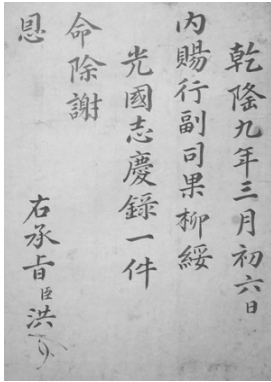 乾隆九年三月初六日
內賜行副司果柳綏
光國志慶錄一件
命除謝
恩
右承旨臣洪